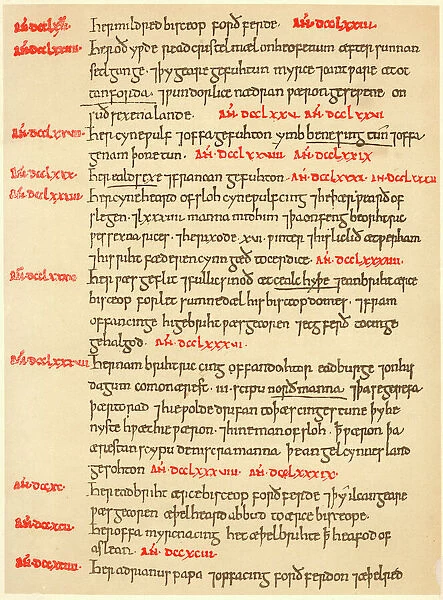 AN̄·DCCLXXII· Her mildred bisceop forð ferde· AN̄·DCCLXXIII·
AN̄·DCCLXXIIII· Her oð ypde read cristel mæl on heofenum æfter sunnan
setlgonge· ⁊ þy geare gefuhtun myrce ⁊ cantpare æt ot
tanforda· ⁊ pundorlice nædran pæron gesepene on
suðsexena lande· AN̄·DCCLXXV· AN̄·DCCLXXVI·
AN̄·DCCLXXVII· Her cynepulf ⁊ offa gefuhton ymb benesing tun ⁊ offa
genam þone tun· AN̄·DCCLXXVIII· AN̄·DCCLXXIX·
AN̄·DCCLXXX· Her ealdsexe ⁊ francan gefuhton· AN̄·DCCLXXXI· AN̄·DCCLXXXII·
AN̄·DCCLXXXIII· Her cyneheard ofsloh cynepulf cing ⁊ he þær pearð of
slegen· ⁊ lxxxiiii manna mit him ⁊ þa onfeng beorhtric
pessexna rices· ⁊ he rixode xvi· pinter ⁊ his lic lið æt perham
⁊ his riht fæderen cynn gæð to cerdice· AN̄·DCCLXXXIIII·
AN̄·DCCLXXXV· Her pæs geflit fullic sinoð æt cealc hyþe ⁊ eanbriht ærce
bisceop forlet sumne dæl his bisceopdomes· ⁊ fram
offan cinge higebriht pæs gecoren ⁊ ecgferð to cinge
gehalgod· AN̄·DCCLXXXVI·
AN̄·DCCLXXXVII· Her nam brihtric cing offan dohtor eadburge ⁊ on his
dagum comon ærest· iii· scipu norðmanna ⁊ þa se gerefa
þær to rad ⁊ he polde drifan to þæs cinges tune þy he
nyste hpæt hie pæron· ⁊ hine man ofsloh· þ pæron þa
ærestan scypu deniscra manna þe angel cynnes land
gesohton AN̄·DCCLXXXVIII· AN̄·DCCLXXXIX·
AN̄·DCCXC· Her eadbriht ærcebisceop forð ferde ⁊ þy ilcan geare
pæs gecoren æþelheard abbud to ærce bisceope·
AN̄·DCCXCII· Her offa myrcna cing het æþelbrihte þ heafod of
aslean· AN̄·DCCXCIII·
AN̄·DCCXCIIII· Her adrianus papa ⁊ offa cing forð ferdon ⁊ æþelred